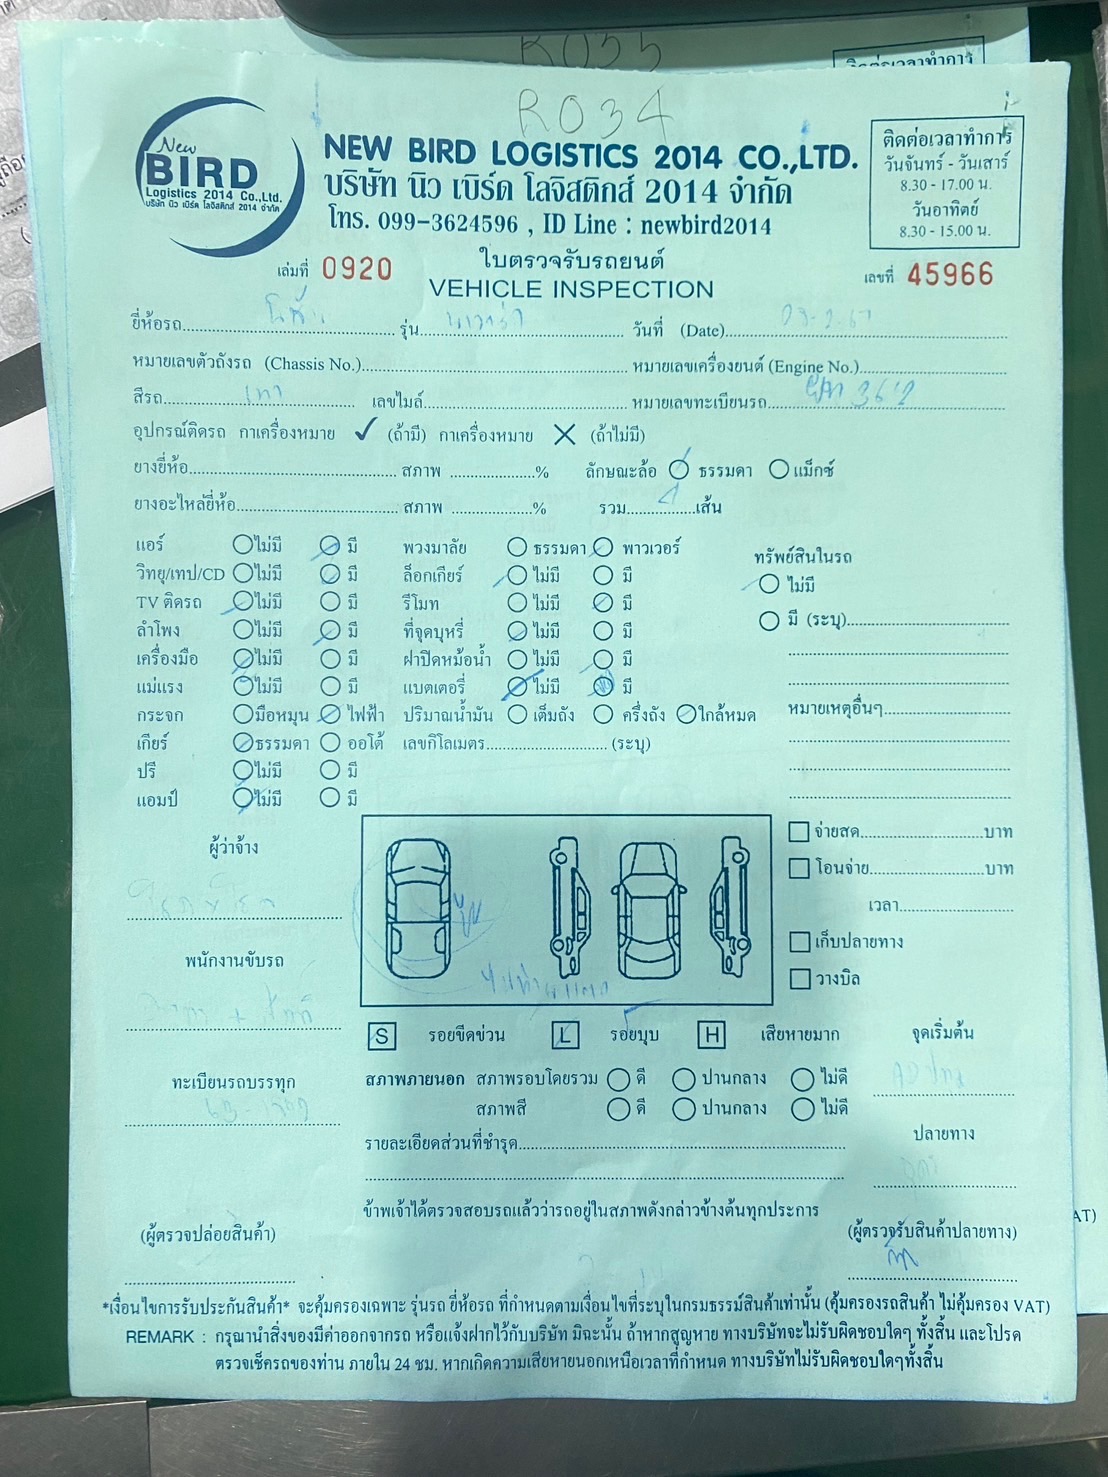 R035
ติดต่อเวลาทำการ
R034
New
BIRD
Logistics 2014 Co.,Ltd.
บริษัท นิว เบิร์ด โลจิสติกส์ 2014 จำกัด
NEW BIRD LOGISTICS 2014 CO.,LTD.
บริษัท นิว เบิร์ด โลจิสติกส์ 2014 จำกัด
โทร. 099-3624596 , ID Line : newbird2014
ติดต่อเวลาทำการ
วันจันทร์ - วันเสาร์
8.30 - 17.00 น.
วันอาทิตย์
8.30 - 15.00 น.
เล่มที่ 0920
ใบตรวจรับรถยนต์
VEHICLE INSPECTION
เลขที่ 45966
ยี่ห้อรถ รุ่น วันที่ (Date)
หมายเลขตัวถังรถ (Chassis No.) หมายเลขเครื่องยนต์ (Engine No.)
สีรถ เทา เลขไมล์ หมายเลขทะเบียนรถ
อุปกรณ์ติดรถ กาเครื่องหมาย ✓ (ถ้ามี) กาเครื่องหมาย ✕ (ถ้าไม่มี)
ยางยี่ห้อ สภาพ % ลักษณะล้อ ธรรมดา แม็กซ์
ยางอะไหล่ยี่ห้อ สภาพ % รวม 4 เส้น
แอร์ ไม่มี มี พวงมาลัย ธรรมดา พาวเวอร์
วิทยุ/เทป/CD ไม่มี มี ล็อกเกียร์ ไม่มี มี
TV ติดรถ ไม่มี มี รีโมท ไม่มี มี
ลำโพง ไม่มี มี ที่จุดบุหรี่ ไม่มี มี
เครื่องมือ ไม่มี มี ฝาปิดหม้อน้ำ ไม่มี มี
แม่แรง ไม่มี มี แบตเตอรี่ ไม่มี มี
กระจก มือหมุน ไฟฟ้า ปริมาณน้ำมัน เต็มถัง ครึ่งถัง ใกล้หมด
เกียร์ ธรรมดา ออโต้ เลขกิโลเมตร (ระบุ)
ปรี ไม่มี มี
แอมป์ ไม่มี มี
ทรัพย์สินในรถ
ไม่มี
มี (ระบุ)
หมายเหตุอื่นๆ
ผู้ว่าจ้าง
พนักงานขับรถ
ทะเบียนรถบรรทุก
จ่ายสด บาท
โอนจ่าย บาท
เวลา
เก็บปลายทาง
วางบิล
S รอยขีดข่วน L รอยบุบ H เสียหายมาก
จุดเริ่มต้น
สภาพภายนอก สภาพรอบโดยรวม ดี ปานกลาง ไม่ดี
สภาพสี ดี ปานกลาง ไม่ดี
ปลายทาง
รายละเอียดส่วนที่ชำรุด
ข้าพเจ้าได้ตรวจสอบรถแล้วว่ารถอยู่ในสภาพดังกล่าวข้างต้นทุกประการ
(ผู้ตรวจปล่อยสินค้า)
(ผู้ตรวจรับสินค้าปลายทาง)
AT)
*เงื่อนไขการรับประกันสินค้า* จะคุ้มครองเฉพาะ รุ่นรถ ยี่ห้อรถ ที่กำหนดตามเงื่อนไขที่ระบุในกรมธรรม์สินค้าเท่านั้น (คุ้มครองรถสินค้า ไม่คุ้มครอง VAT)
REMARK : กรุณานำสิ่งของมีค่าออกจากรถ หรือแจ้งฝากไว้กับบริษัท มิฉะนั้น ถ้าหากสูญหาย ทางบริษัทจะไม่รับผิดชอบใดๆ ทั้งสิ้น และโปรด
ตรวจเช็ครถของท่าน ภายใน 24 ชม. หากเกิดความเสียหายนอกเหนือเวลาที่กำหนด ทางบริษัทไม่รับผิดชอบใดๆทั้งสิ้น